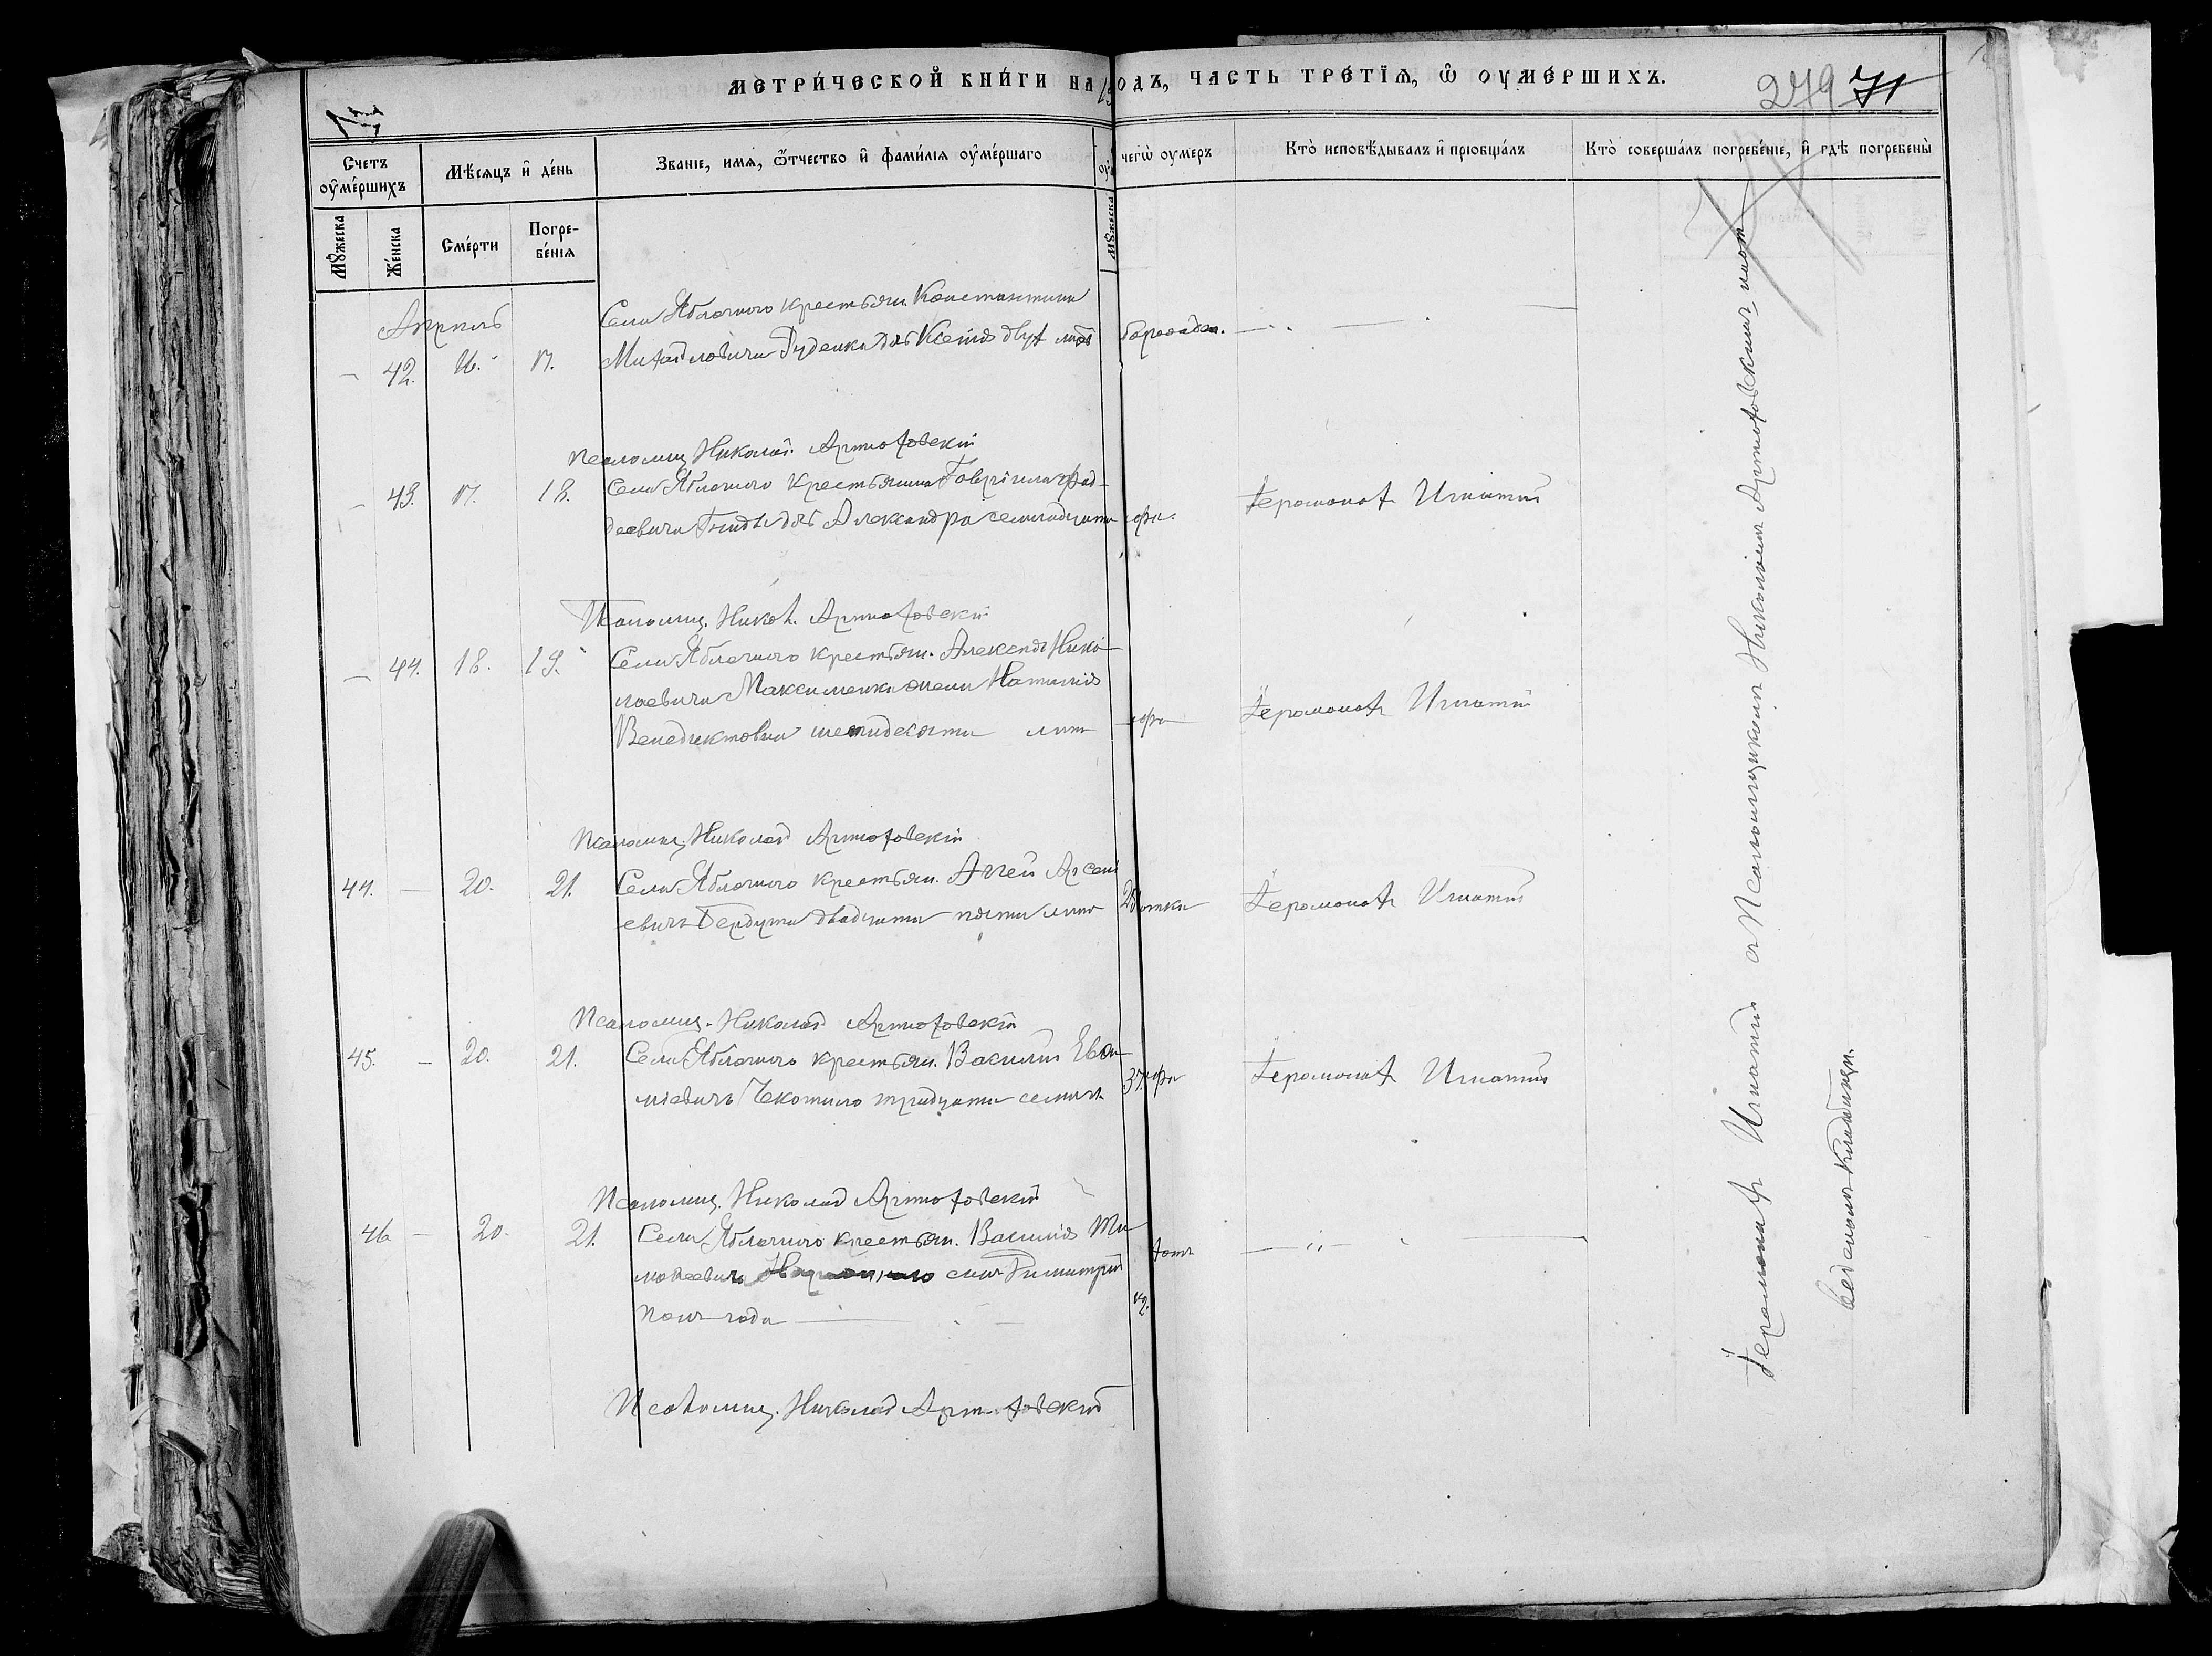 МЕТРИ́ЧЕСКОЙ КНИ́ГИ НА ОДЪ, ЧАСТЬ ТРЕ́ТІѦ, Ѿ ОУМЕ́РШИХЪ.
279 71
Счетъ оумéршихъ
Мѣсѧцъ и дéнь
Звáніе, имѧ, ѿтчество и фамúліѧ оумéршаго
чегѡ̀ оумеръ
Ктò исповѣ́дывалъ и пріобщáлъ
Ктò совершáлъ погребéніе, и гдѣ погребены̀
Мȣжеска
Жéнска
Смéрти
Погре-
бéніѧ
Мȣжеска
Апрѣль
Села Яблочного крестьян. Константина
— 42. 16. 17. Михайловича Руденка дчь Ксенія двух лѣтъ
Псаломщ. Николай Артюховскій
— 43. 17. 18. Села Яблочного крестьянина Гавріила Фад-
деевича Гниды дчь Александра семнадцати
Іеромонах Игнатій
Псаломщ. Никол. Артюховскій
— 44. 18. 19. Села Яблочного крестьян. Александ Нико-
лаевича Максименка жена Наталія
Венедиктовна шестидесяти лѣтъ
Іеромонах Игнатій
Псаломщ. Николай Артюховскій
44. — 20. 21. Села Яблочного крестьян. Аггей Арсені
евичъ Бердута двадцати пяти лѣтъ 25
Іеромонах Игнатій
Псаломщ. Николай Артюховскій
45. — 20. 21. Села Яблочного крестьян. Василій Евѳи-
міевичъ Чекотило тридцати семи л. 37
Іеромонах Игнатій
Псаломщ. Николай Артюховскій
46 — 20. 21. Села Яблочного крестьян. Василія Ти-
моѳеевича сынъ Димитрій
полъ года 1/2
Псаломщ. Николай Артюховскій
Іеромонах Игнатій съ Псаломщикомъ Николаемъ Артюховскимъ на
кладбищѣ.